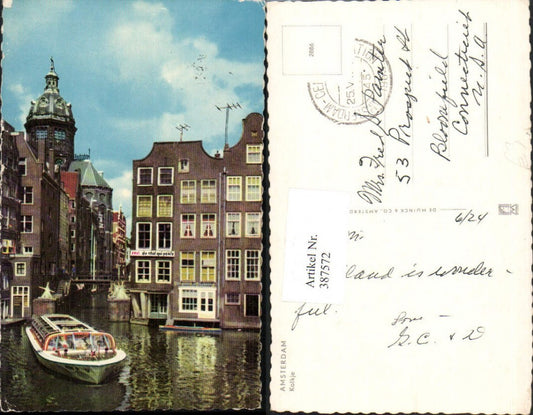 au chat qui pelote
2866
25.V
Mrs Fred J Painter
53 Prospect St
Bloomfield
Connecticut
U.S.A
DE MUINCK & CO., AMSTERDAM
6/24
land is wonder-
ful.
Love -
G.C. & D
Artikel Nr.
387572
AMSTERDAM
Kolkje